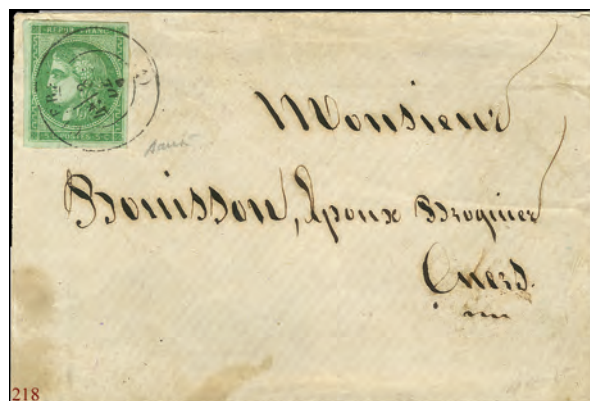 REPUB. FRANC.
Monsieur
Bouisson, Epoux Broquier
Cuers.
218